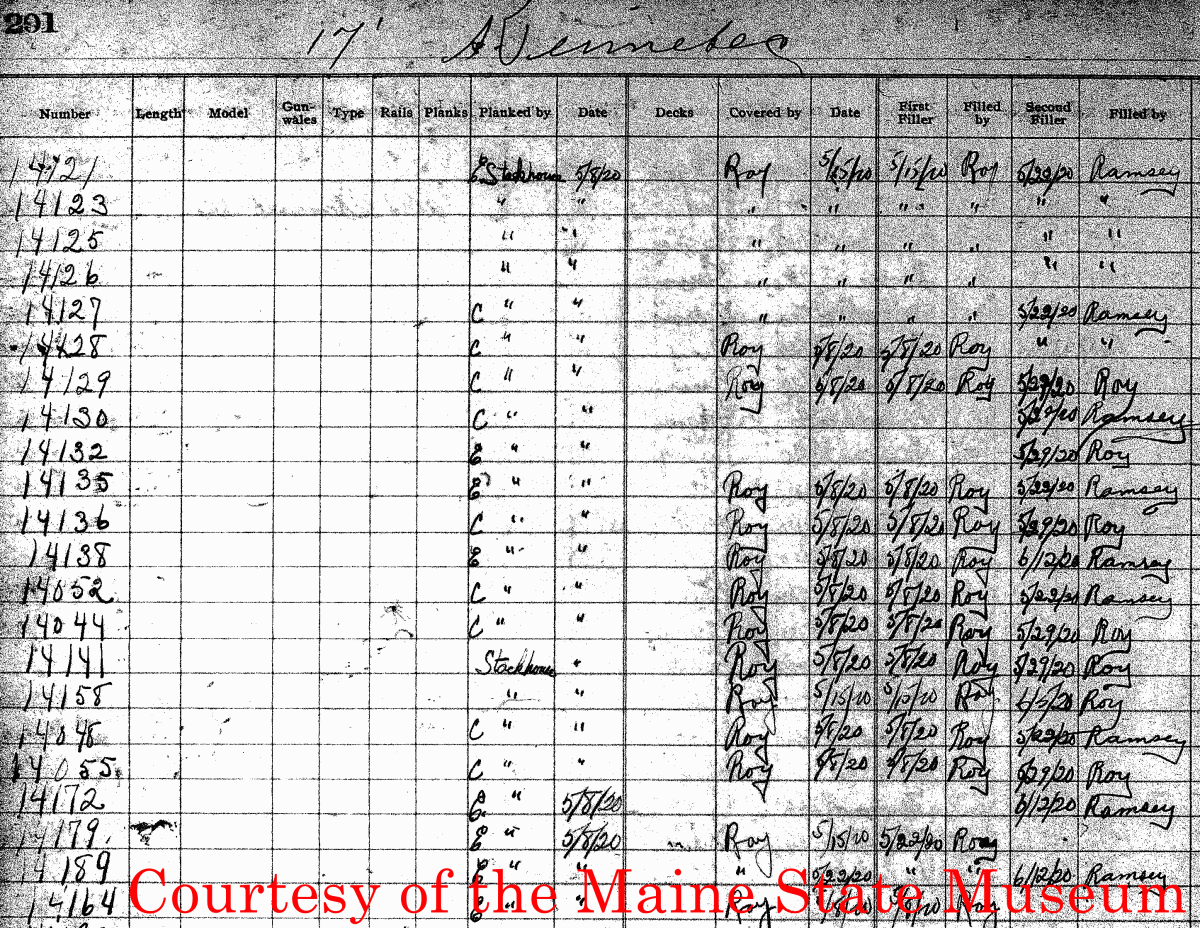 201
17' Kennebec
Number Length Model Gun-wales Type Rails Planks Planked by Date Decks Covered by Date First Filler Filled by Second Filler Filled by
14121 E Stackhouse 5/8/20 Roy 5/15/20 5/15/20 Roy 5/22/20 Ramsey
14123 " " " " " " " "
14125 " " " " " " " "
14126 " " " " " " " "
14127 C " " " " " " 5/22/20 Ramsey
14128 C " " Roy 5/8/20 5/8/20 Roy " "
14129 C " " Roy 5/8/20 5/8/20 Roy 5/29/20 Roy
14130 C " " Ramsey
14132 E " " 5/29/20 Roy
14135 E " " Roy 5/8/20 5/8/20 Roy 5/22/20 Ramsey
14136 C " " Roy 5/8/20 5/8/20 Roy 5/29/20 Roy
14138 E " " Roy 5/8/20 5/8/20 Roy 6/12/20 Ramsey
14052 C " " Roy 5/8/20 5/8/20 Roy 5/22/20 Ramsey
14044 C " " Roy 5/8/20 5/8/20 Roy 5/29/20 Roy
14141 Stackhouse " Roy 5/8/20 5/8/20 Roy 5/29/20 Roy
14158 " " Roy 5/15/20 5/15/20 Roy 6/5/20 Roy
14048 C " " Roy 5/8/20 5/8/20 Roy 5/22/20 Ramsey
14055 C " " Roy 5/8/20 5/8/20 Roy 5/29/20 Roy
14172 E " 5/8/20 6/12/20 Ramsey
14179 E " 5/8/20 Roy 5/15/20 5/22/20 Roy
14189 E " " " 5/22/20 " " 6/12/20 Ramsey
14164 E " " Roy Roy
Courtesy of the Maine State Museum